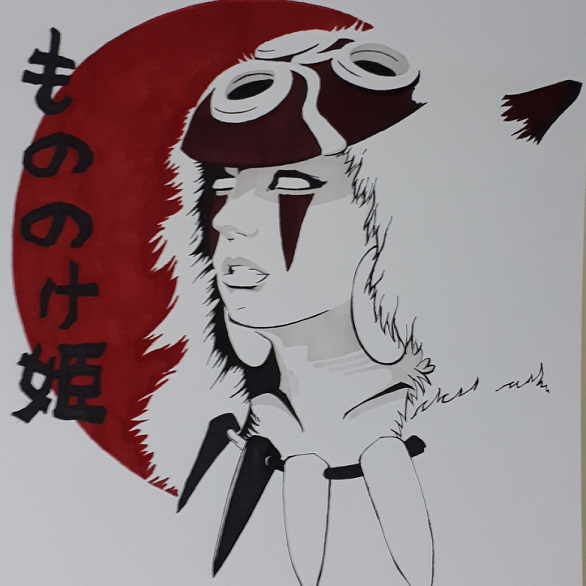 もののけ姫